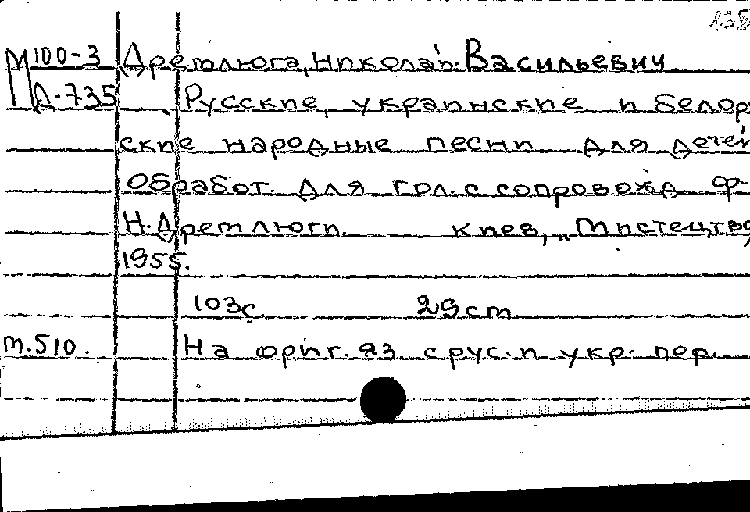 М 100-3 Дремлюга, Николай Васильевич
Д-735 Русские, украинские и белор
ские народные песни для детей
Обработ. для гол. с сопровожд ф-
Н. Дремлюги. Киев, „Мистецтво,
1955.
103с 29 cm
т.510. На ориг. яз. с рус. и укр. пер.